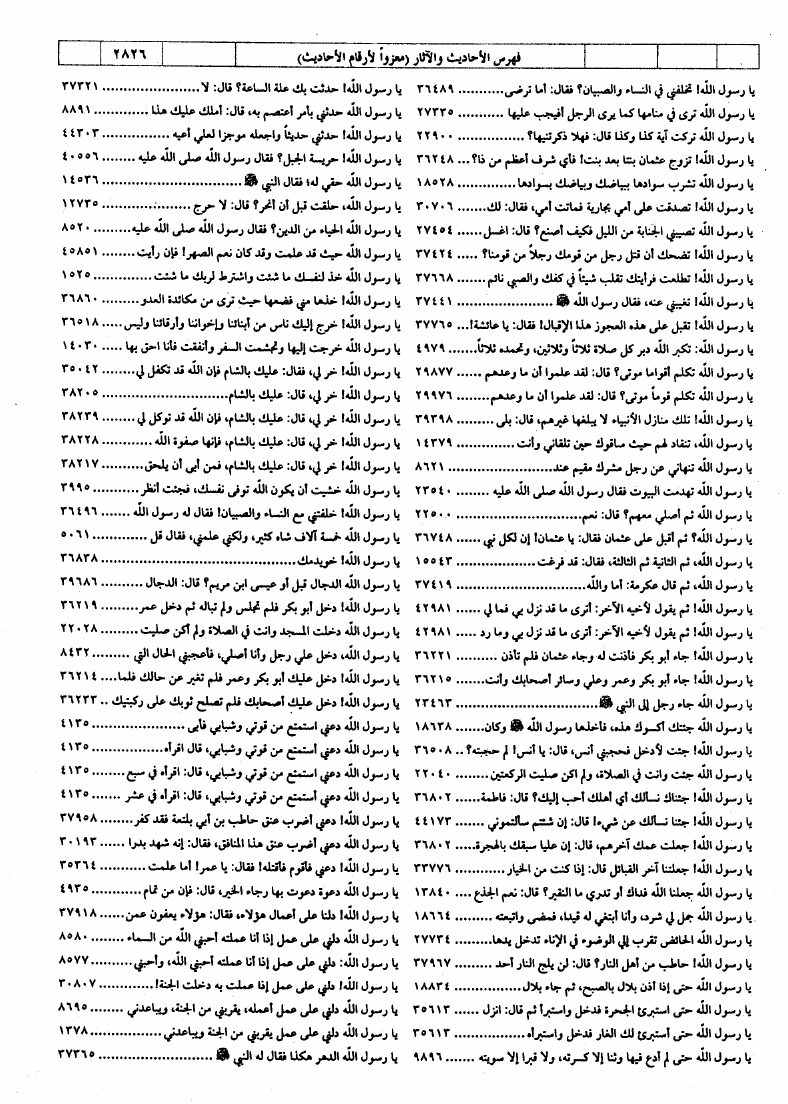 فهرس الأحاديث والآثار (معزواً لأرقام الأحاديث)
٢٨٢٦
يا رسول الله! تخلفني في النساء والصبيان؟ فقال: أما ترضى........... ٣٦٤٨٩
يا رسول الله ترى في منامها كما يرى الرجل أفيجب عليها ........... ٢٧٣٣٥
يا رسول الله تركت آية كذا وكذا قال: فهلا ذكرتنيها؟.................. ٢٢٩٠٠
يا رسول الله! تزوج عثمان بنتا بعد بنت! فأي شرف أعظم من ذا؟... ٣٦٢٤٨
يا رسول الله تشرب سوادها ببياضك وبياضك بسوادها............... ١٨٥٢٨
يا رسول الله! تصدقت على أمي بجارية فماتت أمي، فقال: لك........ ٣٠٧٠٦
يا رسول الله تصيبني الجنابة من الليل فكيف أصنع؟ قال: اغسل...... ٢٧٤٥٤
يا رسول الله! تضحك أن قتل رجل من قومك رجلاً من قومنا؟ ..... ٣٧٤٢٤
يا رسول الله! تطلعت فرأيتك تقلب شيئاً في كفك والصبي نائم........ ٣٧٦٦٨
يا رسول الله! تغيبني عنه، فقال رسول الله ﷺ ...................... ٣٧٤٤١
يا رسول الله! تقبل على هذه العجوز هذا الإقبال! فقال: يا عائشة!... ٣٧٧٦٥
يا رسول الله: تكبر الله دبر كل صلاة ثلاثاً وثلاثين، وتحمده ثلاثاً....... ٤٩٧٩
يا رسول الله تكلم أقواما موتى؟ قال: لقد علموا أن ما وعدهم ...... ٢٩٨٧٧
يا رسول الله تكلم قوماً موتى؟ قال: لقد علموا أن ما وعدهم......... ٢٩٩٧٦
يا رسول الله! تلك منازل الأنبياء لا يبلغها غيرهم، قال: بلى ......... ٣٩٣٩٨
يا رسول الله، تنقاد لهم حيث ساقوك حين تلقاني وأنت .............. ١٤٣٧٩
يا رسول الله تنهاني عن رجل مشرك مقيم عند...................... ٨٦٢١
يا رسول الله تهدمت البيوت فقال رسول الله صلى الله عليه ......... ٢٣٥٤٠
يا رسول الله ثم أصلي معهم؟ قال: نعم............................. ٢٢٥٠٠
يا رسول الله؟ ثم أقبل على عثمان فقال: يا عثمان! إن لكل نبي ...... ٣٦٧٤٨
يا رسول الله، ثم الثانية ثم الثالثة، فقال: قد فرغت................. ١٥٥٤٣
يا رسول الله، ثم قال عكرمة: أما والله............................. ٣٧٤١٩
يا رسول الله! ثم يقول لأخيه الآخر: أترى ما قد نزل بي فما لي ..... ٤٢٩٨١
يا رسول الله! ثم يقول لأخيه الآخر: أترى ما قد نزل بي وما رد ..... ٤٢٩٨١
يا رسول الله! جاء أبو بكر فأذنت له وجاء عثمان فلم تأذن .......... ٣٦٢٢١
يا رسول الله! جاء أبو بكر وعمر وعلي وسائر أصحابك وأنت........ ٣٦٢١٥
يا رسول الله جاء رجل إلى النبي ﷺ............................... ٢٣٤٦٣
يا رسول الله جئتك أكسوك هذه، فأخذها رسول الله ﷺ وكان....... ١٨٦٣٨
يا رسول الله! جئت لأدخل فحجبني أنس، قال: يا أنس! لم حجبته؟.. ٣٦٥٠٨
يا رسول الله جئت وانت في الصلاة، ولم اكن صليت الركعتين ....... ٢٢٠٤٠
يا رسول الله! جئناك نسألك أي أهلك أحب إليك؟ قال: فاطمة...... ٣٦٨٠٢
يا رسول الله! جئنا نسألك عن شيء! قال: إن شئتم سألتموني ....... ٤٤١٧٣
يا رسول الله! جعلت عمك آخرهم، قال: إن عليا سبقك بالهجرة..... ٣٦٨٠٢
يا رسول الله! جعلتنا آخر القبائل قال: إذا كنت من الخيار........... ٣٣٧٧٦
يا رسول الله جعلنا الله فداك أو تدري ما النقير؟ قال: نعم الجذع .... ١٣٨٤٠
يا رسول الله جمل لي شرد، وأنا أبتغي له قيدا، فمضى واتبعته ........ ١٨٦٦٤
يا رسول الله الحائض تقرب إلي الوضوء في الإناء تدخل يدها......... ٢٧٧٣٤
يا رسول الله! حاطب من أهل النار؟ قال: لن يلج النار أحد ......... ٣٧٩٦٧
يا رسول الله حتى إذا أذن بلال بالصبح، ثم جاء بلال............... ١٨٨٣٤
يا رسول الله حتى استبرئ الحجرة فدخل واستبرأ ثم قال: انزل ....... ٣٥٦١٣
يا رسول الله حتى أستبرئ لك الغار فدخل واستبرأه................. ٣٥٦١٣
يا رسول الله حتى لم أدع فيها وثنا إلا كسرته، ولا قبرا إلا سويته ....... ٩٨٩٦
يا رسول الله! حدثت بك علة الساعة؟ قال: لا...................... ٣٧٣٢١
يا رسول الله! حدثني بأمر أعتصم به، قال: أملك عليك هذا ......... ٨٨٩١
يا رسول الله! حدثني حديثاً واجعله موجزا لعلي أعيه ............... ٤٤٣٠٣
يا رسول الله! حريسة الجبل؟ فقال رسول الله صلى الله عليه ........ ٤٠٥٥٦
يا رسول الله حقي له؛ فقال النبي ﷺ............................. ١٤٥٣٦
يا رسول الله، حلقت قبل أن أنحر؟ قال: لا حرج .................. ١٢٧٣٥
يا رسول الله! الحياء من الدين؟ فقال رسول الله صلى الله عليه....... ٨٥٢٠
يا رسول الله حيث قد علمت وقد كان نعم الصهر! فإن رأيت....... ٤٥٨٥١
يا رسول الله خذ لنفسك ما شئت واشترط لربك ما شئت ............ ١٥٢٥
يا رسول الله! خذها مني فضعها حيث ترى من مكائدة العدو......... ٣٦٨٦٠
يا رسول الله! خرج إليك ناس من أبنائنا وإخواننا وأرقائنا وليس .... ٣٦٥١٨
يا رسول الله خرجت إليها وتجشمت السفر وأنفقت فأنا احق بها ..... ١٤٠٣٠
يا رسول الله! خر لي، فقال: عليك بالشام فإن الله قد تكفل لي...... ٣٥٠٤٢
يا رسول الله! خر لي، قال: عليك بالشام.......................... ٣٨٢٠٥
يا رسول الله! خر لي، قال: عليك بالشام، فإن الله قد توكل لي ...... ٣٨٢٣٩
يا رسول الله! خر لي، قال: عليك بالشام، فإنها صفوة الله .......... ٣٨٢٢٨
يا رسول الله! خر لي، قال: عليك بالشام، فمن أبى أن يلحق......... ٣٨٢١٧
يا رسول الله خشيت أن يكون الله توفى نفسك، فجئت أنظر.......... ٣٩٩٥
يا رسول الله! خلفتني مع النساء والصبيان! فقال له رسول الله ...... ٣٦٤٩٦
يا رسول الله! خمسة آلاف شاه كثير، ولكني علمني، فقال قل ........ ٥٠٦١
يا رسول الله! خويدمك........................................... ٣٦٨٣٨
يا رسول الله الدجال قبل أو عيسى ابن مريم؟ قال: الدجال ......... ٣٩٦٨٦
يا رسول الله! دخل أبو بكر فلم تجلس ولم تباله ثم دخل عمر........ ٣٦٢١٩
يا رسول الله دخلت المسجد وانت في الصلاة ولم اكن صليت ........ ٢٢٠٢٨
يا رسول الله، دخل علي رجل وأنا أصلي، فأعجبني الحال التي ....... ٨٤٣٢
يا رسول الله! دخل عليك أبو بكر وعمر فلم تغير عن حالك فلما.... ٣٦٢١٤
يا رسول الله! دخل عليك أصحابك فلم تصلح ثوبك على ركبتيك .. ٣٦٢٣٣
يا رسول الله دعني استمتع من قوتي وشبابي فأبى .................. ٤١٣٥
يا رسول الله دعني استمتع من قوتي وشبابي، قال اقرأه............. ٤١٣٥
يا رسول الله دعني أستمتع من قوتي وشبابي، قال: اقرأه في سبع ..... ٤١٣٥
يا رسول الله دعني أستمتع من قوتي وشبابي، قال: اقرأه في عشر ..... ٤١٣٥
يا رسول الله! دعني أضرب عنق حاطب بن أبي بلتعة فقد كفر....... ٣٧٩٥٨
يا رسول الله! دعني أضرب عنق هذا المنافق، فقال: إنه شهد بدرا ... ٣٠١٩٣
يا رسول الله! دعني فأقوم فأقتله! فقال: يا عمر! أما علمت ......... ٣٥٣٦٤
يا رسول الله دعوة دعوت بها رجاء الخير، قال: فإن من تمام......... ٤٩٣٥
يا رسول الله! دلنا على أعمال هؤلاء، فقال: هؤلاء يعفون عمن...... ٣٧٩١٨
يا رسول الله دلني على عمل إذا أنا عملته أحبني الله من السماء ...... ٨٥٨٠
يا رسول الله: دلني على عمل إذا أنا عملته أحبني الله، وأحبني......... ٨٥٧٧
يا رسول الله! دلني على عمل إذا عملت به دخلت الجنة!............ ٣٠٨٠٧
يا رسول الله دلني على عمل أعمله، يقربني من الجنة، ويباعدني ...... ٨٦٩٥
يا رسول الله دلني على عمل يقربني من الجنة ويباعدني ............. ١٣٧٨
يا رسول الله الدهر هكذا فقال له النبي ﷺ ....................... ٣٧٣٦٥